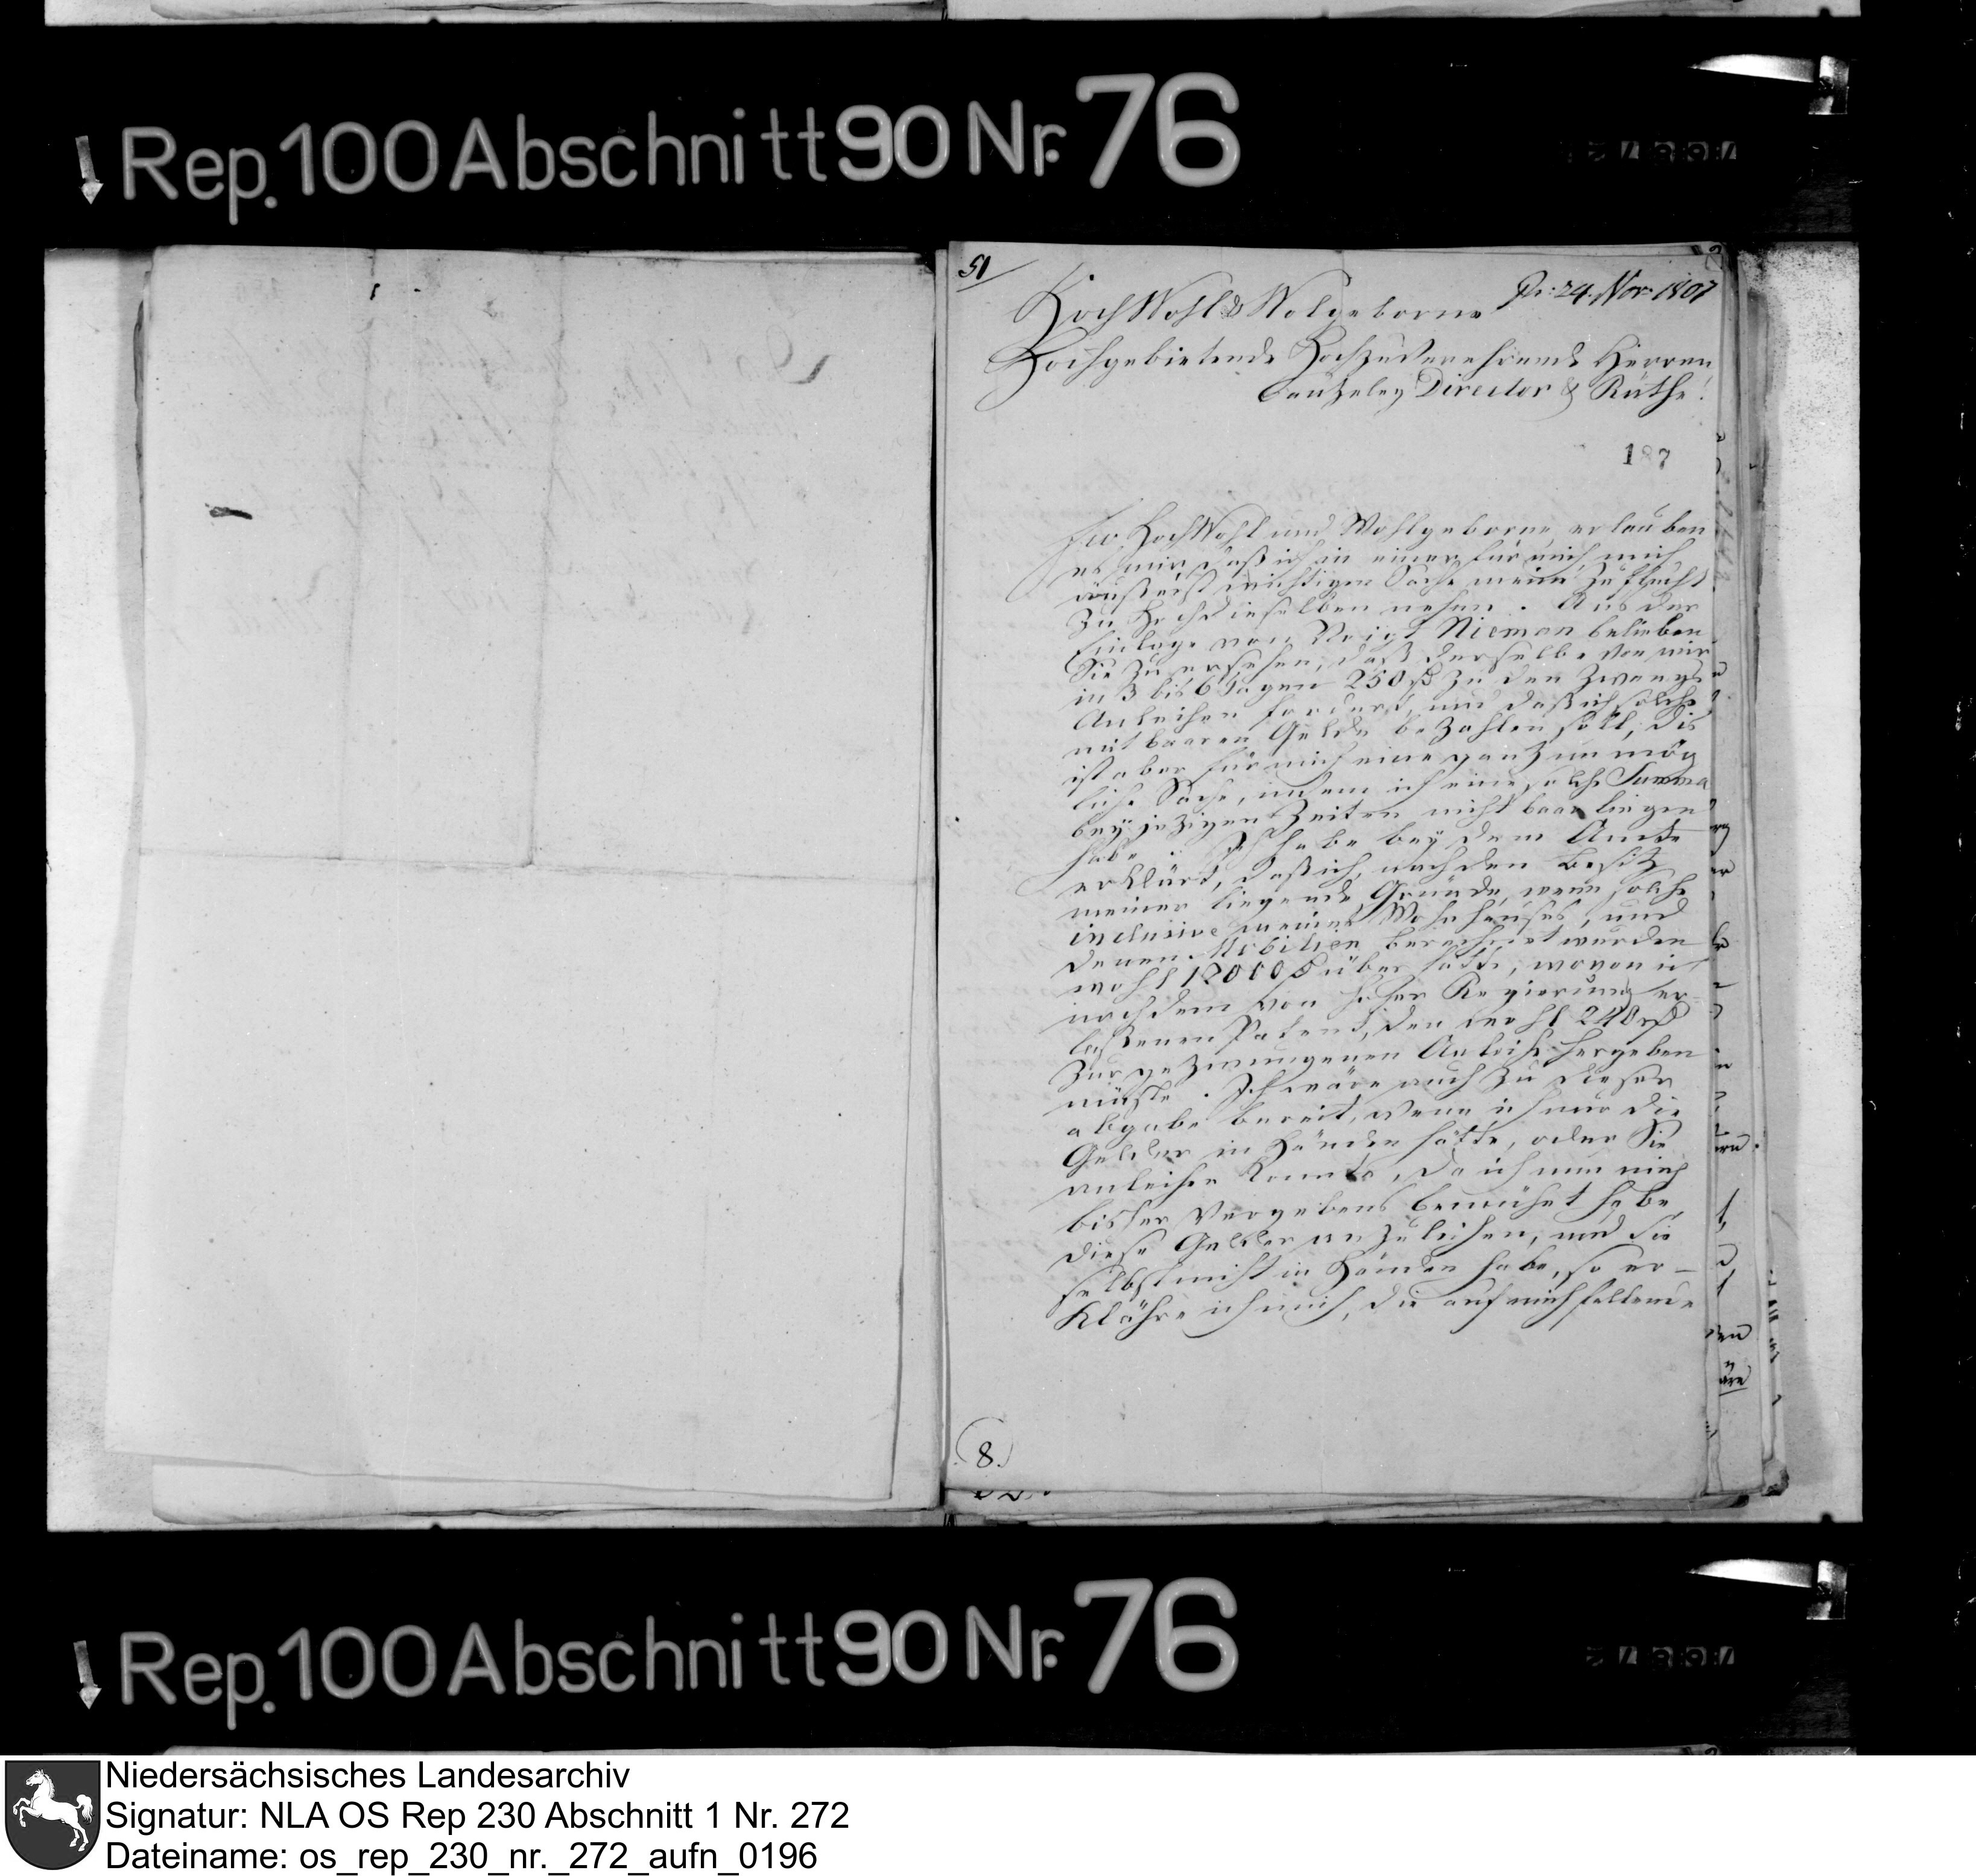 Rep. 100 Abschnitt 90 Nr. 76
51
Pr: 24. Nov. 1807
HochWohl & Wolgeborne
Hochgebietende Hochzuverehrende Herren
Cantzeley Director & Räthe!
187
Ew HochWohl und Wohlgeborne, erlauben
es mir, daß ich in einer für mich
äußerst wichtigen Sache meine Zuflucht
zu Hochdieselben nehme. Aus der
Einlage vom Voigt Nieman belieben
Sie zu ersehen, daß derselbe von mir
in 3 bis 6 Tagen 250 rß zu den Zwangs
Anleihen fordert, und daß ich solche
mit baaren Gelde bezahlen soll, dis
ist aber für mich eine ganz unmög
liche Sache, indem ich eine solche Summa
bey jezigen Zeiten nicht baar liegen
habe. Ich habe bey dem Amte
erklärt, daß ich, nach den Besitz
meiner liegende Gründe, wenn solche
inclusive meines Wohnhauses, und
denen Mobilien berechnet wurden
wohl 12000 rß über hätte, wovon ich
nach dem von hoher Regierung er-
laßenen Patent, den wohl 240 rß
zur gezwungenen Anleihe hergeben
müßte. Ich wäre auch zu dieser
abgabe bereit, wenn ich nur die
Gelder in Händen hätte, oder Sie
anleihen konnte, da ich nun mich
bisher vergebens bemühet habe,
diese Gelder anzuleihen, und sie
selbst nicht in Händen habe, so er-
Klähre ich mich, die auf mich fallende
8.
Rep. 100 Abschnitt 90 Nr. 76
Niedersächsisches Landesarchiv
Signatur: NLA OS Rep 230 Abschnitt 1 Nr. 272
Dateiname: os_rep_230_nr._272_aufn_0196